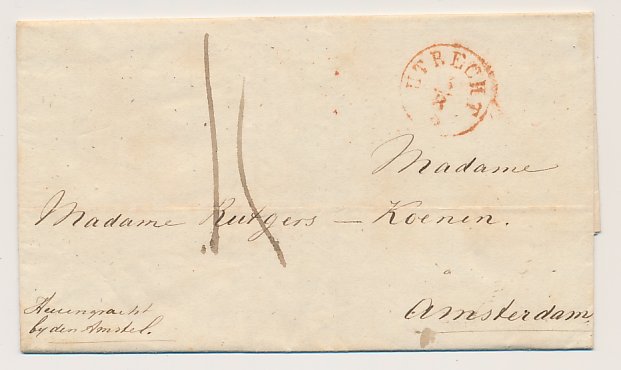 UTRECHT
Madame
Madame Rutgers – Koenen.
à
Amsterdam
Heerengracht
by den Amstel.